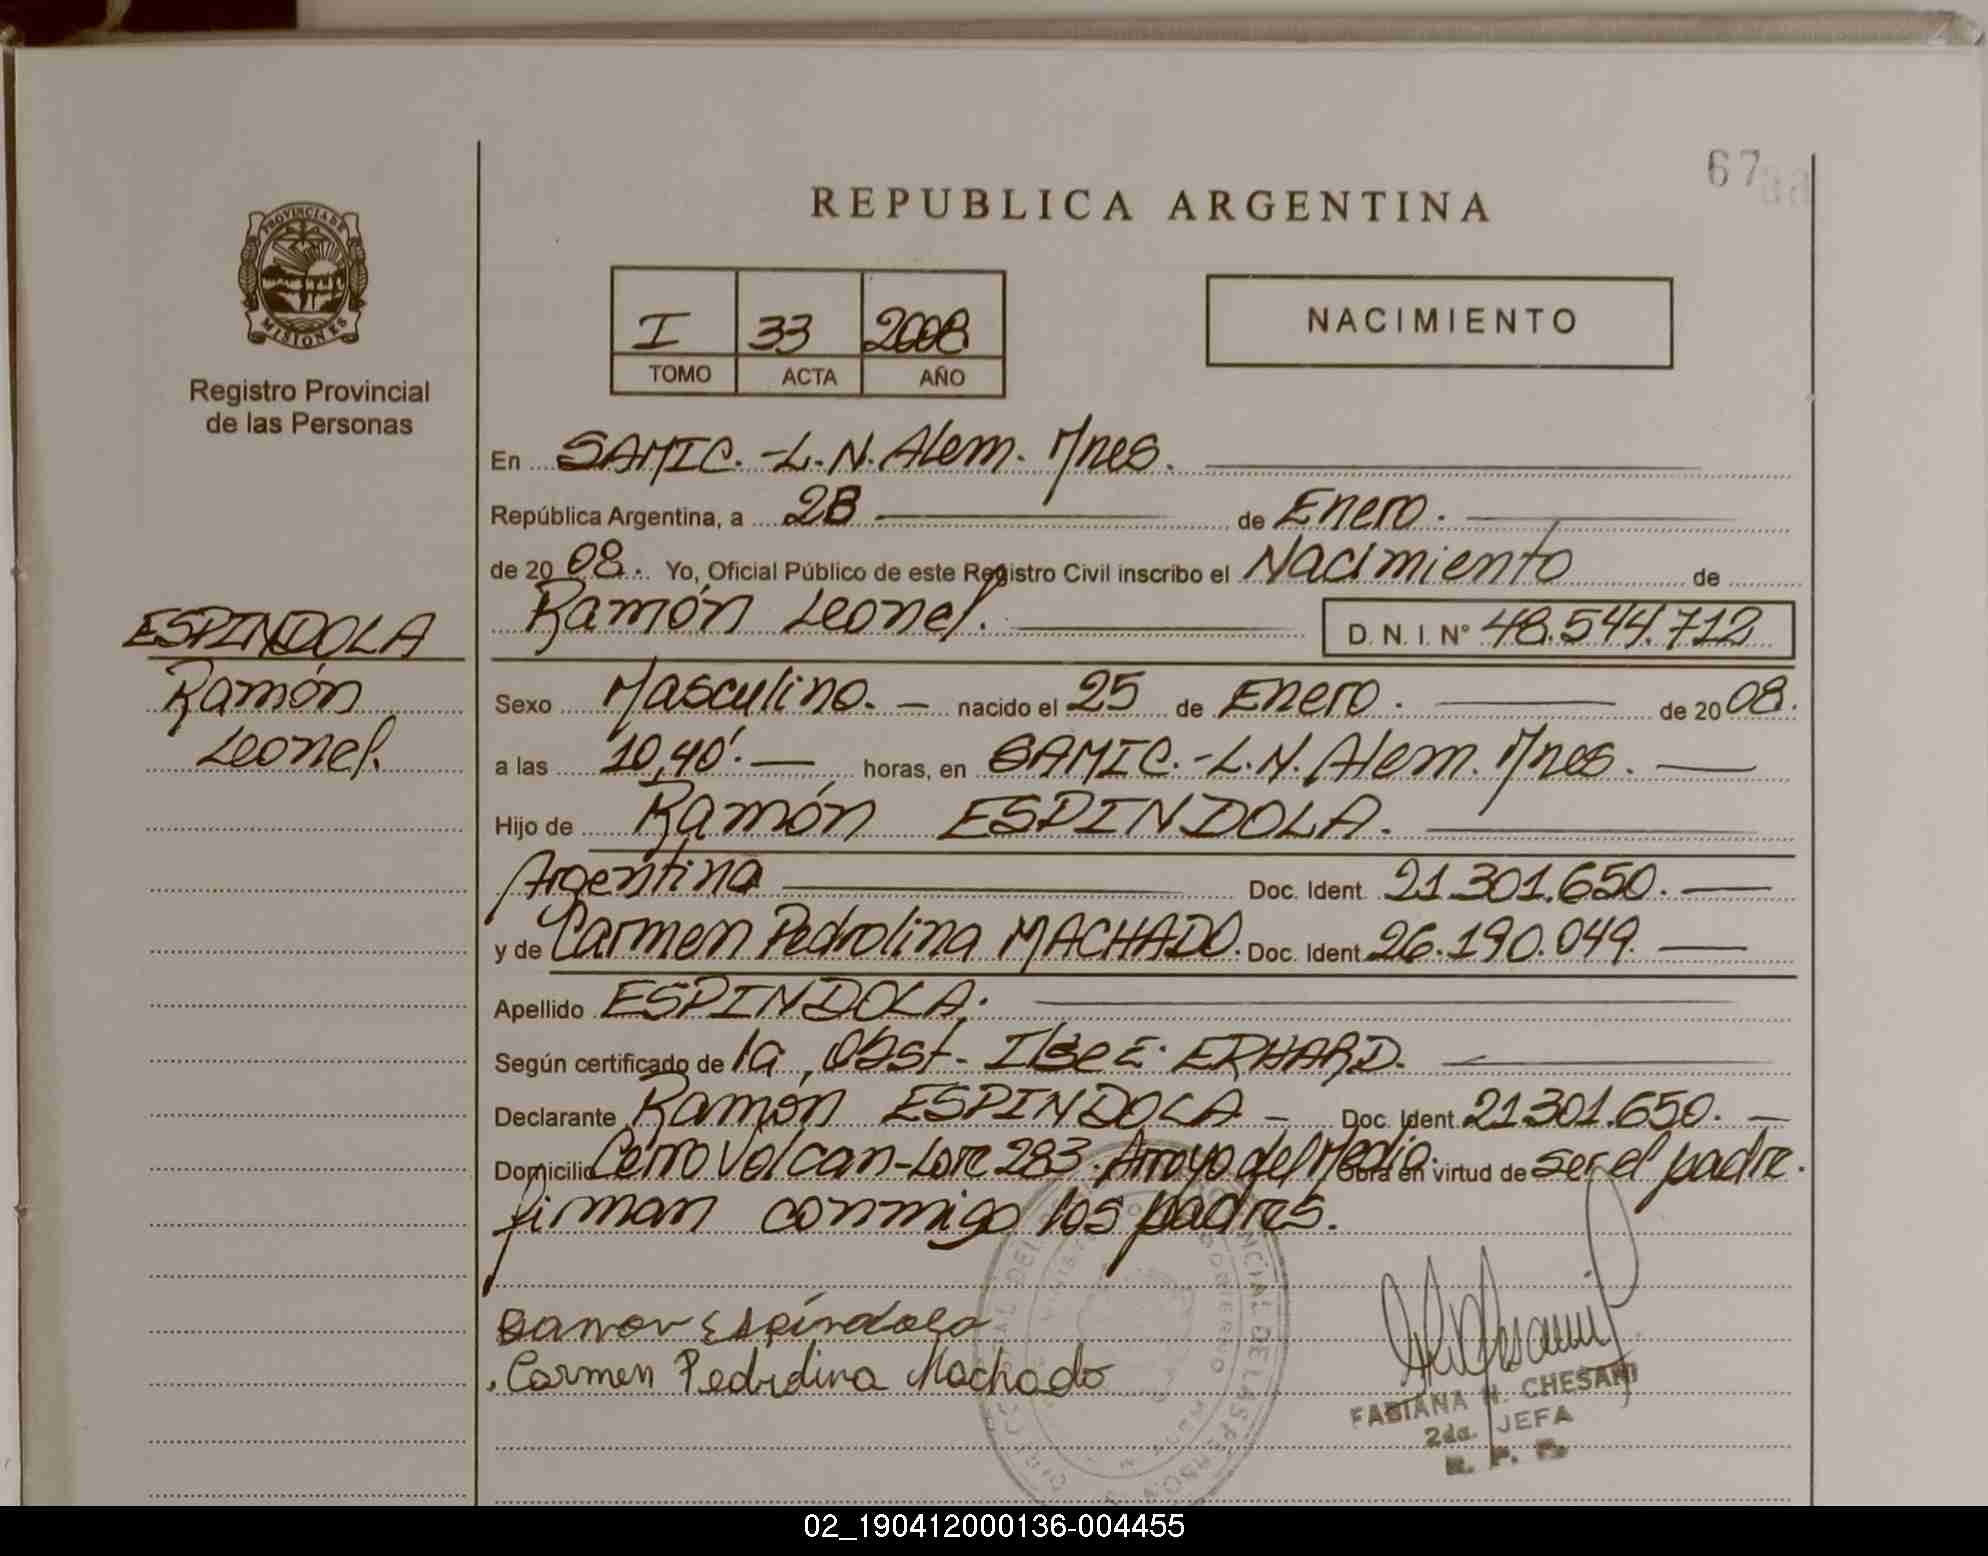 67
REPUBLICA ARGENTINA
PROVINCIA DE
MISIONES
Registro Provincial
de las Personas
I 33 2008
TOMO ACTA AÑO
NACIMIENTO
En SAMIC.-L.N.Alem. Mnes.
República Argentina, a 28 de Enero.
de 2008. Yo, Oficial Público de este Registro Civil inscribo el Nacimiento de
Ramón Leonel. D. N. I. N° 48.544.712
ESPINDOLA
Ramón
Leonel.
Sexo Masculino. — nacido el 25 de Enero. de 2008.
a las 10,40'. — horas, en SAMIC.-L.N. Alem. Mnes. —
Hijo de Ramón ESPINDOLA.
Argentina Doc. Ident. 21.301.650. —
y de Carmen Pedrolina MACHADO. Doc. Ident. 26.190.049. —
Apellido ESPINDOLA.
Según certificado de la Obst. Ilse E. ERHARD.
Declarante Ramón ESPINDOLA — Doc. Ident. 21.301.650. —
Domicilio Cerro Volcan-Lote 283. Arroyo del Medio. Obra en virtud de ser el padre.
firman conmigo los padres.
Ramon Espindola
Carmen Pedrolina Machado
FABIANA H. CHESANI
2da. JEFA
R. P. P.
02_190412000136-004455